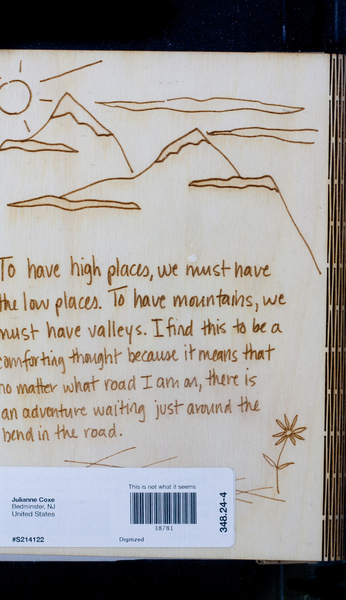 To have high places, we must have
the low places. To have mountains, we
must have valleys. I find this to be a
comforting thought because it means that
no matter what road I am on, there is
an adventure waiting just around the
bend in the road.
This is not what it seems
Julianne Coxe
Bedminster, NJ
United States
18781
348.24-4
#S214122
Digitized